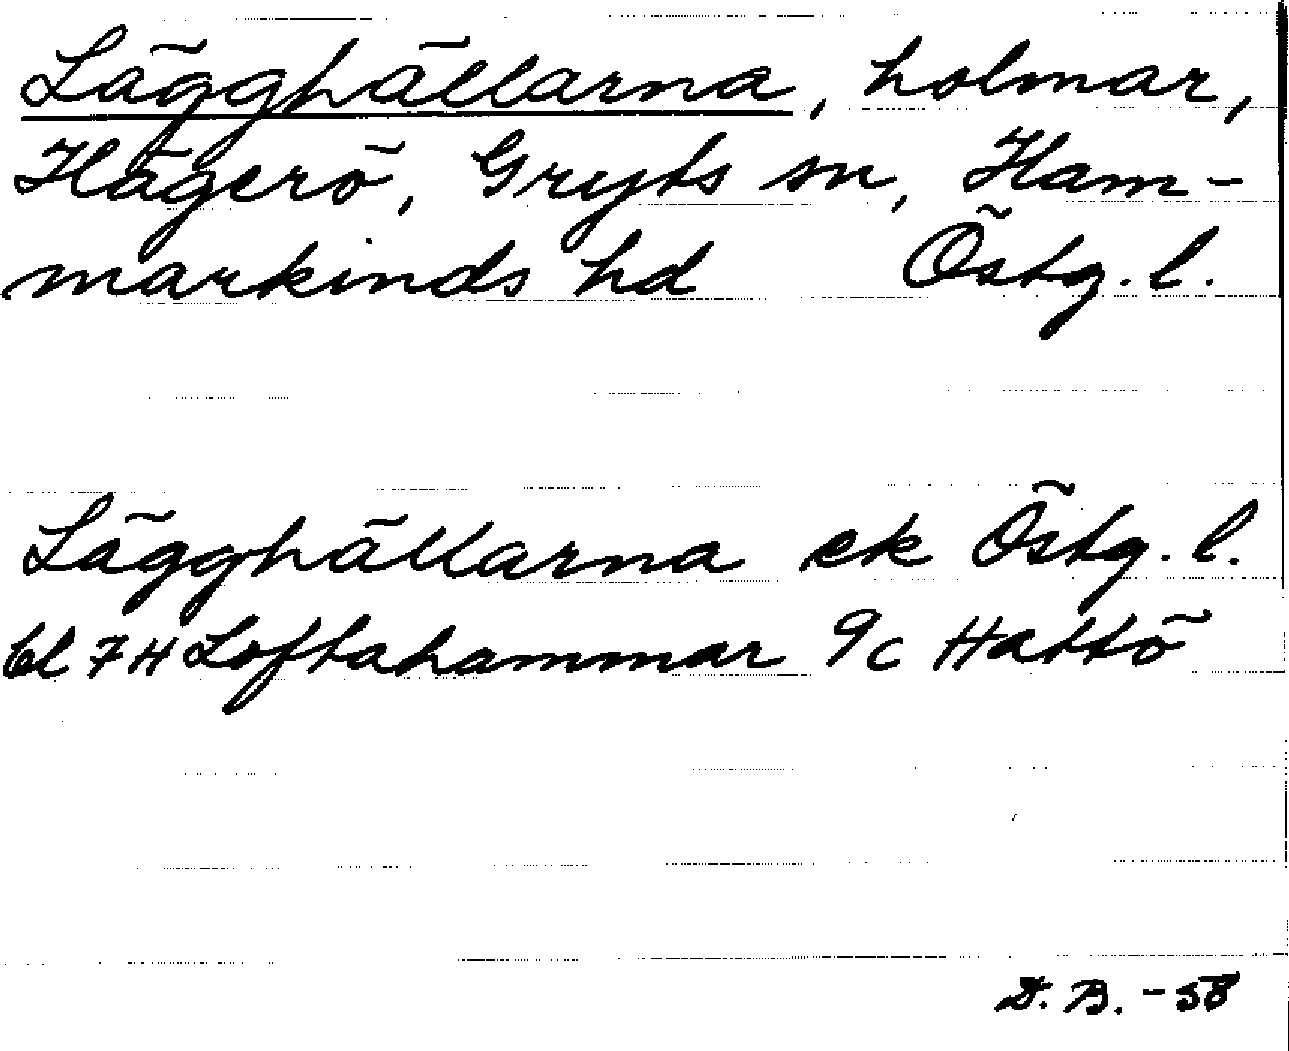 Lägghällarna, holmar,
Hägerö, Gryts sn, Ham-
markinds hd Östg. l.
Lägghällarna ek Östg. l.
bl 7H Loftahammar 9c Hattö
D. B. -58